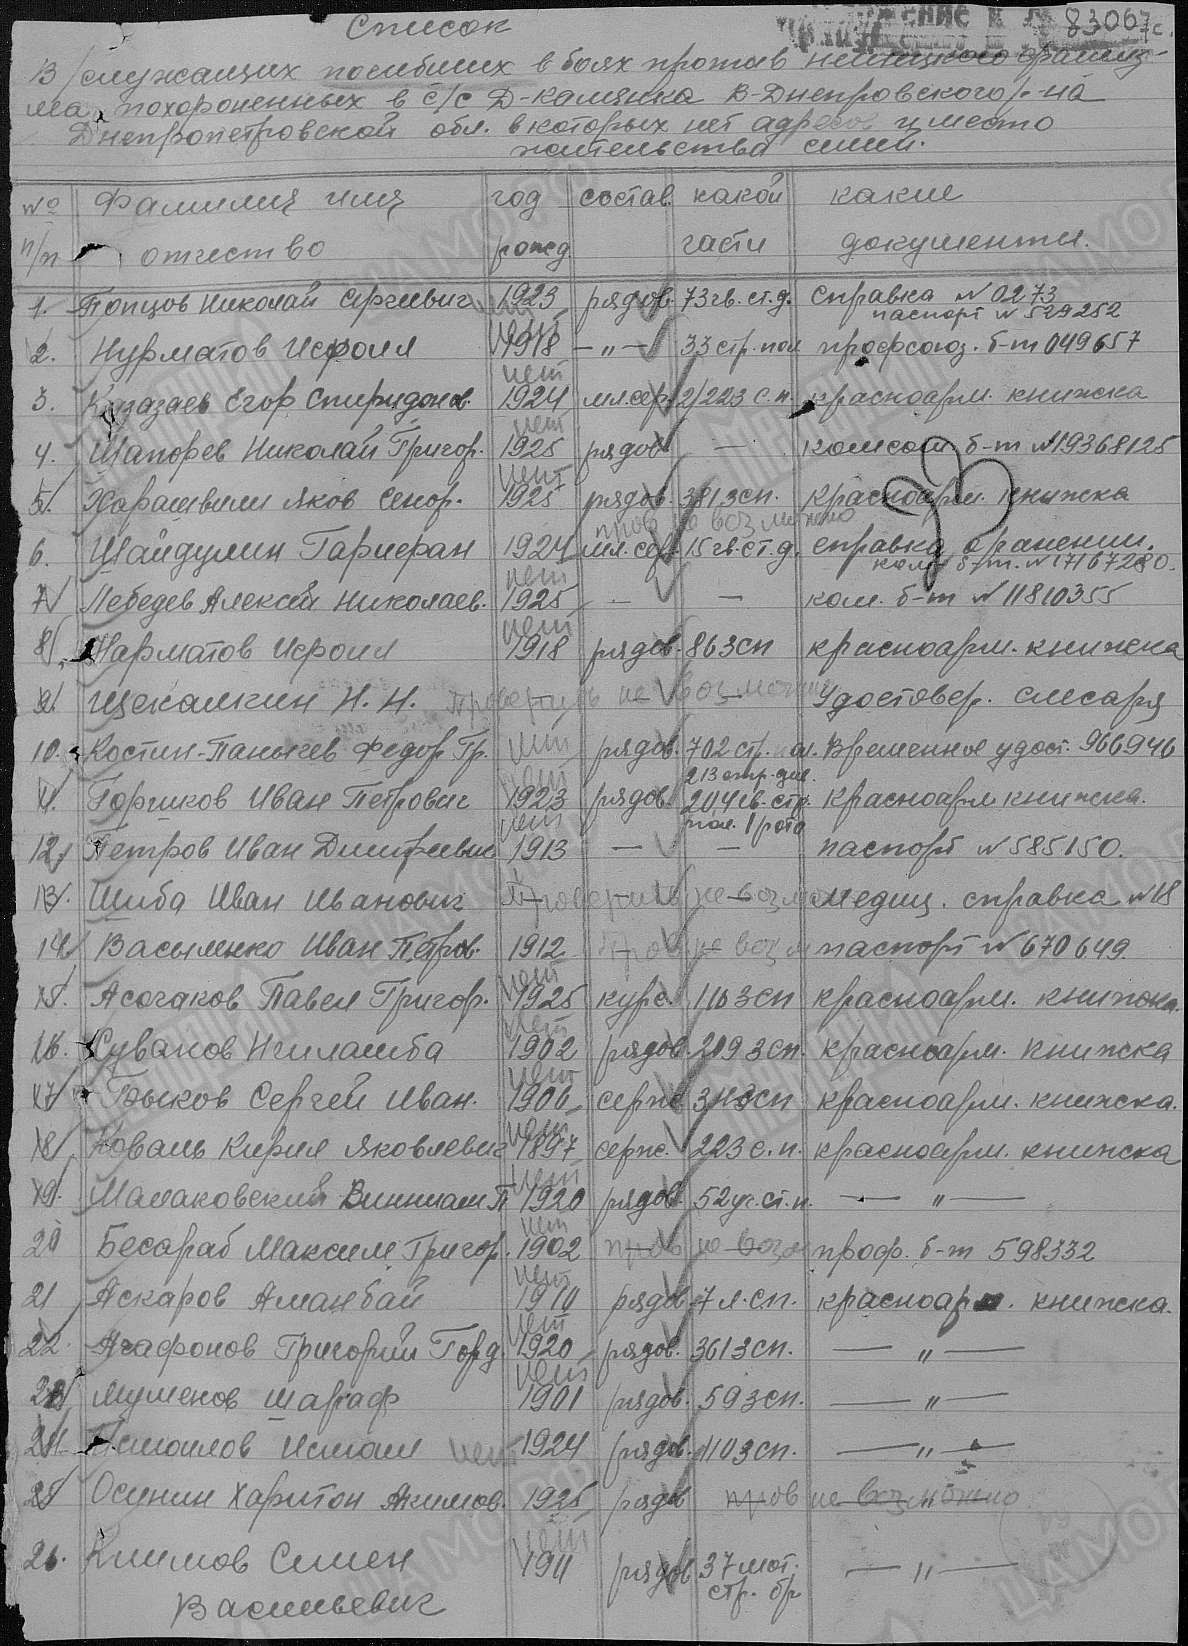 Список
83067с.
В/служащих погибших в боях против немецкого фашиз-
ма, похороненных в с/с Д-Каменка В-Днепровского р-на
Днепропетровской обл. в которых нет адресов и место
жительства семей.
№ Фамилия имя год состав. какой какие
п/п отчество рожд части документы.
1. Попцов Николай Сергиевич 1923 рядов. 73 гв. ст. д. Справка № 0273
паспорт № 529252
нет
2. Нурматов Исроил 1918 — " — 33 стр. пол профсоюз. б-т 049657
нет
3. Егор Спиридонов. 1924 мл.сер. 2/223 с.п. красноарм. книжска
нет
4. Шапорев Николай Григор. 1925 рядов — комсом б-т № 19368125
нет
5. Харашвили Яков Сенор. 1925 рядов. 381 зсп. Красноарм. книжска
пров не возможно
6. Шайдулин Гарифан 1924 мл. сер. 15 гв. ст. д. справка о ранении.
ком. б-т. № 17167280.
нет
7. Лебедев Алексей Николаев. 1925 — — ком. б-т № 11810355
нет
8. Нарматов Исроил 1918 рядов. 86 зсп красноарм. книжска
9. Щекалкин Н. Н. Проверить не возможно Удостовер. слесаря
10. Костин-Панычев Федор Гр. нет рядов. 702 стр. пол. Временное удост. 966946
нет 213 стр. див.
11. Горчиков Иван Петрович 1923 рядов 204 гв. стр. Красноарм книжска.
нет пол. 1 рота
12. Петров Иван Дмитриевич 1913 — — паспорт № 585150.
13. Шиба Иван Иванович Проверить не возмо медиц. справка № 18
14. Васыленко Иван Петров. 1912 пров не возм паспорт № 670649.
нет
15. Асочаков Павел Григор. 1925 курс. 110 зсп красноарм. книжска.
нет
16. Суванов Нгиламба 1902 рядов. 209 зсп. красноарм. книжска
нет
17. Сергей Иван. 1906 серж красноарм. книжска.
нет
18. Коваль Кирил Яковлевич 1897 серж. 223 с. п. красноарм. книжска
нет
19. Малаковский П 1920 рядов 52 уч. ст. п. — " —
нет
20 Бесараб Максим Григор. 1902 пров не возм проф. б-т 598332
нет
21 Аскаров Аманбай 1910 рядов 7 л. сп. красноарм. книжска.
нет
22. Агафонов Григорий Горд 1920 рядов. 361 зсп. — " —
нет
23. Муменов Шараф 1901 рядов. 59 зсп. — " —
24. Исмоилов Исмаил нет 1924 рядов. 110 зсп. — " —
25 Осинин Харитон Акимов. 1925 рядов пров не возможно
нет
26. Климов Семен 1911 рядов 37 мот. — " —
стр. бр
Васильевич